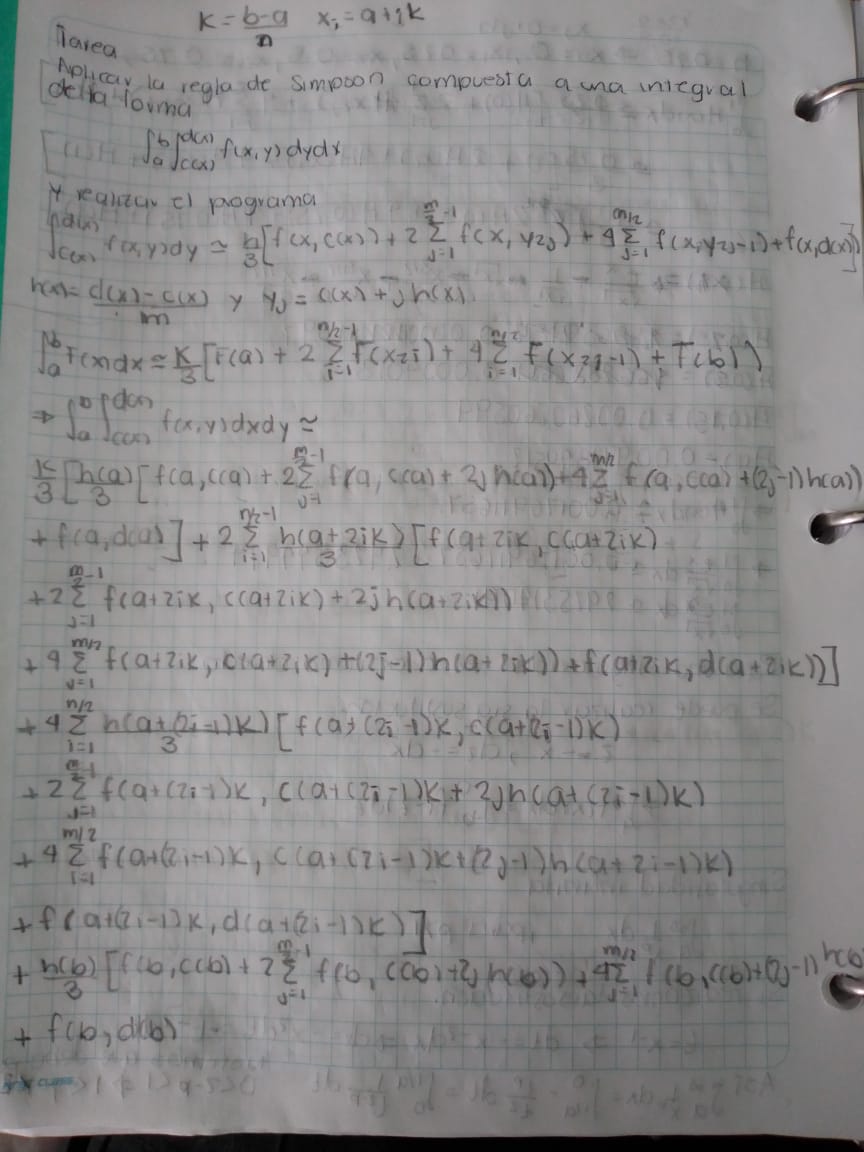 K = \frac{b-a}{n}  x_i = a + i k
Tarea
Aplicar la regla de Simpson compuesta a una integral
de la forma
∫_a^b ∫_{c(x)}^{d(x)} f(x,y) dy dx
Y realizar el programa
∫_{c(x)}^{d(x)} f(x,y) dy ≃ \frac{h}{3} [f(x, c(x)) + 2 Σ_{j=1}^{\frac{m}{2}-1} f(x, y_{2j}) + 4 Σ_{j=1}^{m/2} f(x, y_{2j-1}) + f(x, d(x))]
h(x) = \frac{d(x) - c(x)}{m} y y_j = c(x) + j h(x)
∫_a^b F(x) dx ≃ \frac{K}{3} [F(a) + 2 Σ_{i=1}^{n/2-1} F(x_{2i}) + 4 Σ_{i=1}^{n/2} F(x_{2j-1}) + F(b)]
⇒ ∫_a^b ∫_{c(x)}^{d(x)} f(x,y) dx dy ≃
\frac{K}{3} [\frac{h(a)}{3} [f(a, c(a) + 2 Σ_{j=1}^{\frac{m}{2}-1} f(a, c(a) + 2j h(a)) + 4 Σ_{j=1}^{m/2} f(a, c(a) + (2j-1) h(a))
+ f(a, d(a)] + 2 Σ_{i=1}^{n/2-1} \frac{h(a+2ik)}{3} [f(a+2ik, c(a+2ik)
+ 2 Σ_{j=1}^{\frac{m}{2}-1} f(a+2ik, c(a+2ik) + 2j h(a+2ik))
+ 4 Σ_{j=1}^{m/2} f(a+2ik, c(a+2ik) + (2j-1) h(a+2ik)) + f(a+2ik, d(a+2ik))]
+ 4 Σ_{i=1}^{n/2} \frac{h(a+(2i-1)k)}{3} [f(a+(2i-1)k, c(a+(2i-1)k)
+ 2 Σ_{j=1}^{\frac{m}{2}-1} f(a+(2i-1)k, c(a+(2i-1)k + 2j h(a+(2i-1)k)
+ 4 Σ_{i=1}^{m/2} f(a+(2i-1)k, c(a+(2i-1)k + (2j-1) h(a+2i-1)k)
+ f(a+(2i-1)k, d(a+(2i-1)k)]
+ \frac{h(b)}{3} [f(b, c(b) + 2 Σ_{j=1}^{\frac{m}{2}-1} f(b, c(b) + 2j h(b)) + 4 Σ_{j=1}^{m/2} f(b, c(b) + (2j-1) h(b)
+ f(b, d(b)